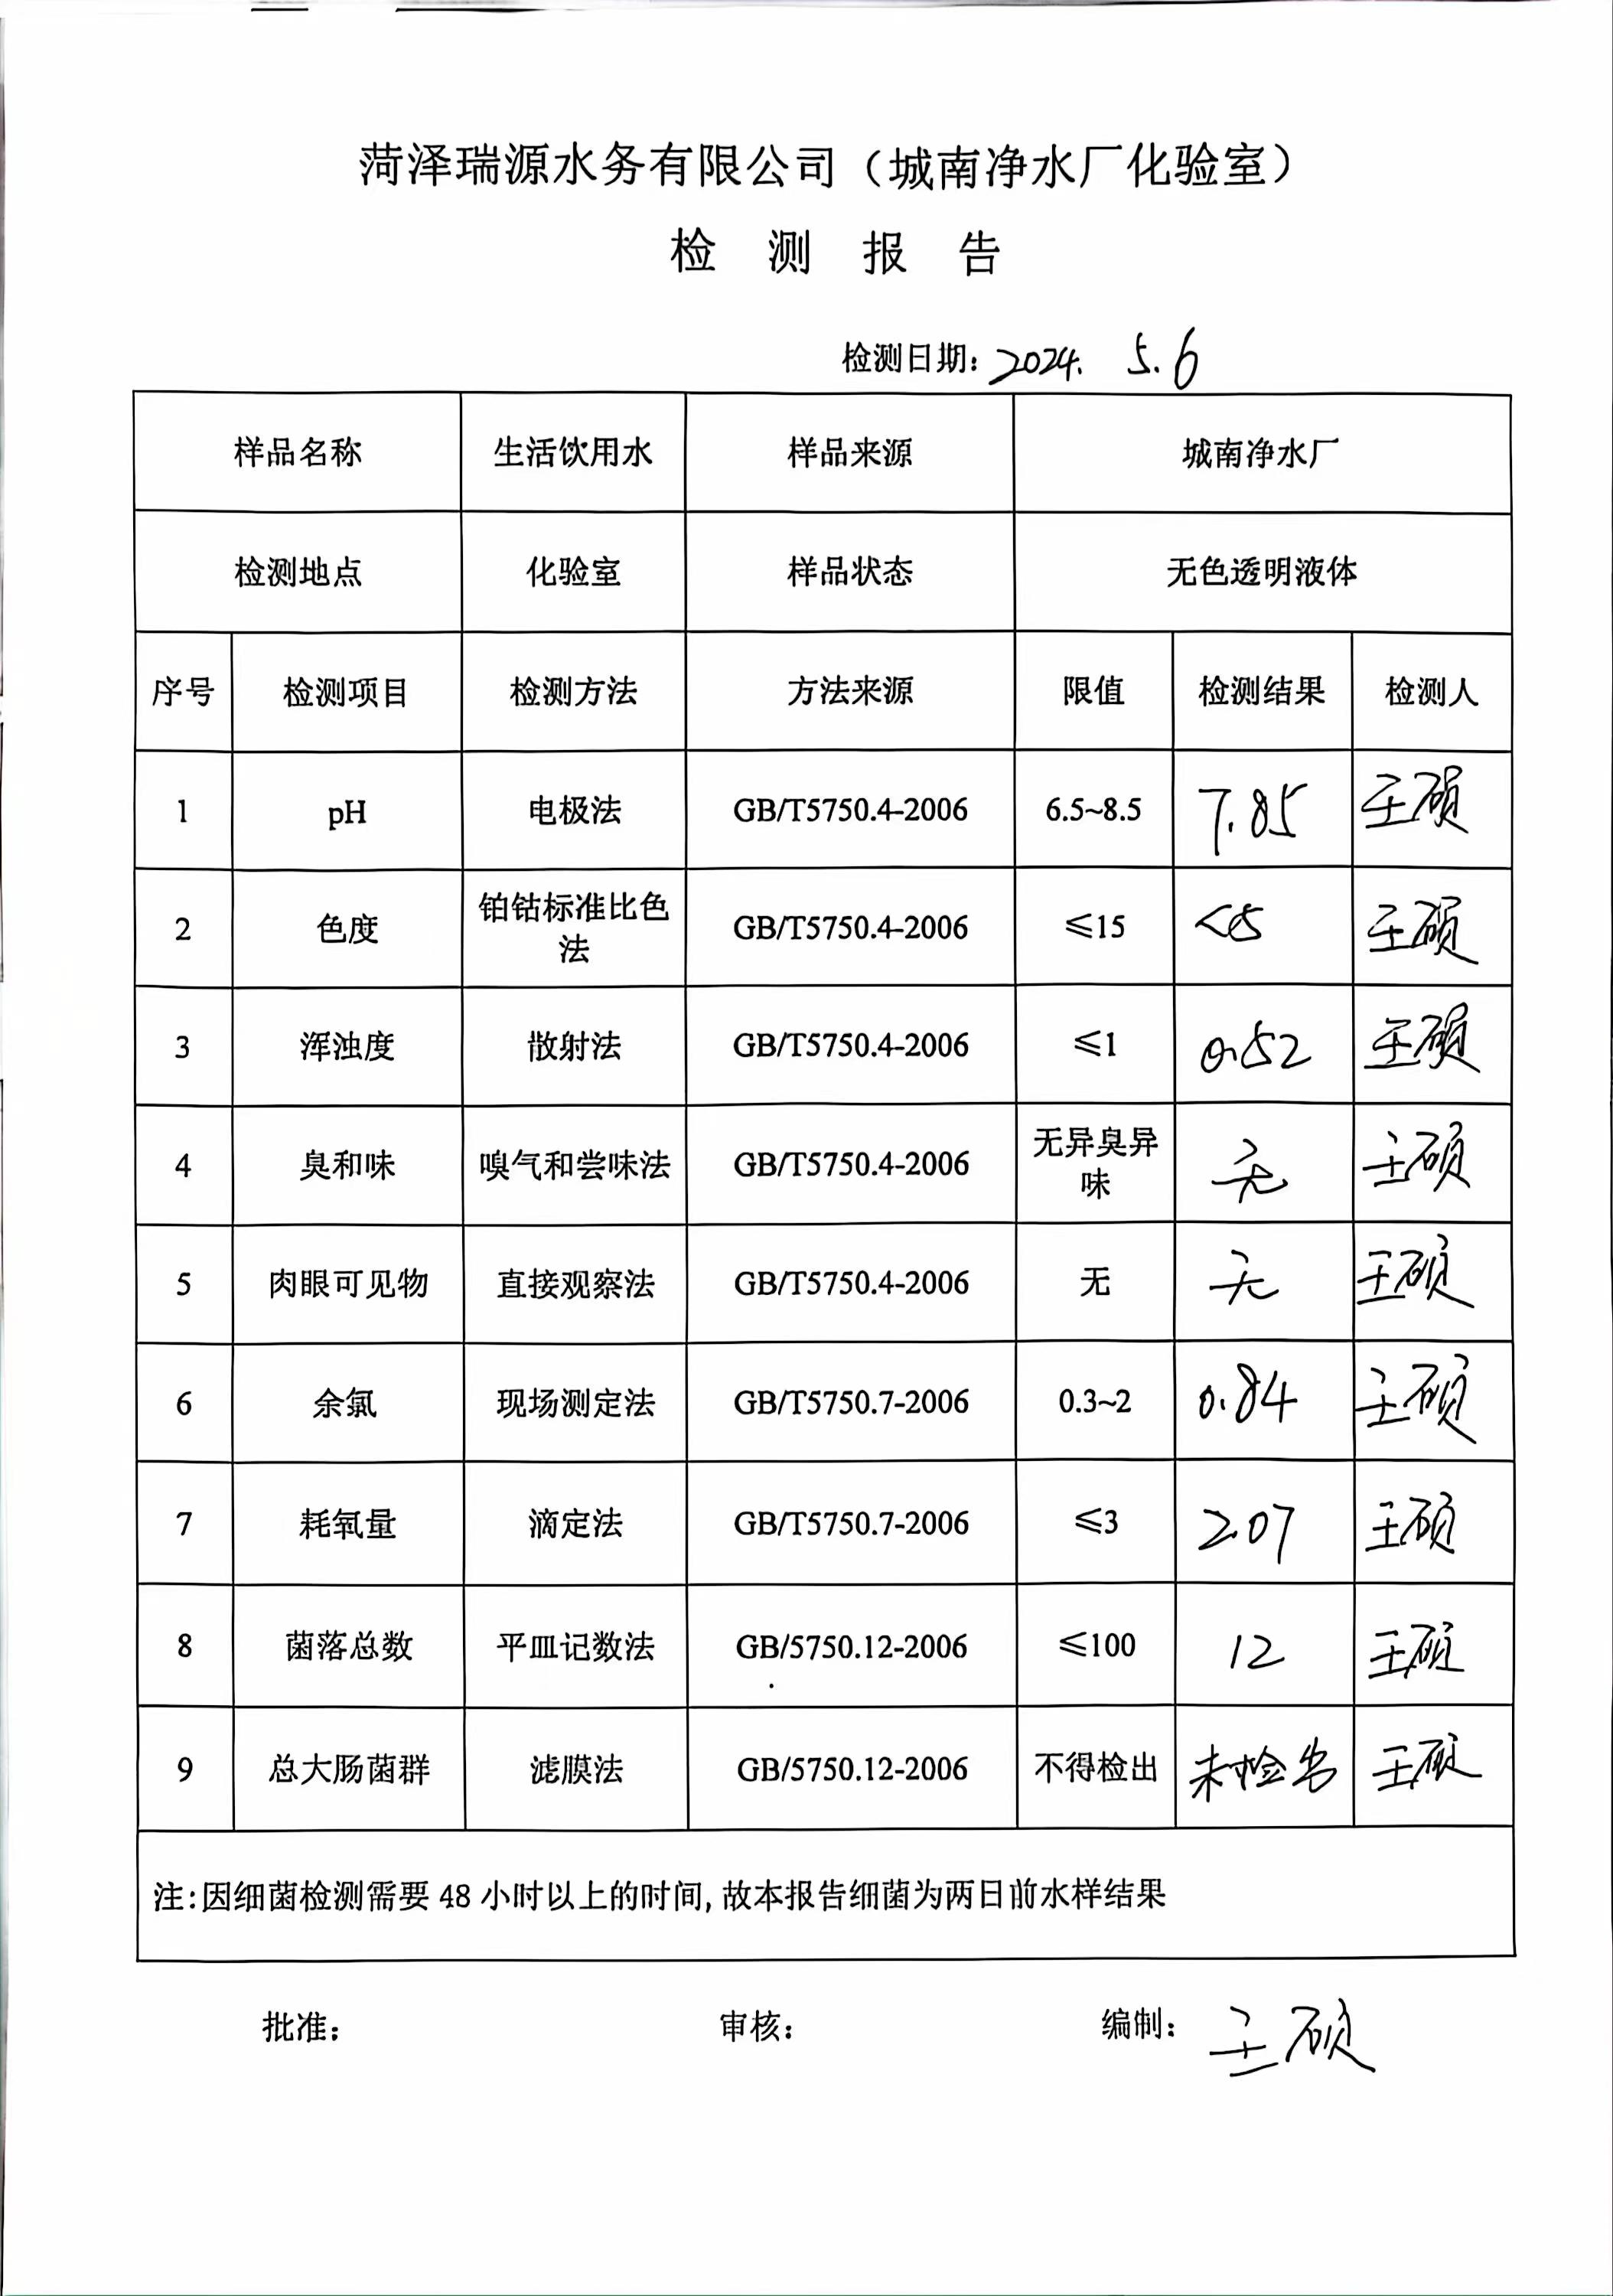 菏泽瑞源水务有限公司（城南净水厂化验室）
检 测 报 告
检测日期：2024. 5.6
样品名称 生活饮用水 样品来源 城南净水厂
检测地点 化验室 样品状态 无色透明液体
序号 检测项目 检测方法 方法来源 限值 检测结果 检测人
1 pH 电极法 GB/T5750.4-2006 6.5~8.5 7.85 王硕
2 色度 铂钴标准比色法 GB/T5750.4-2006 ≤15 <5 王硕
3 浑浊度 散射法 GB/T5750.4-2006 ≤1 0.52 王硕
4 臭和味 嗅气和尝味法 GB/T5750.4-2006 无异臭异味 无 王硕
5 肉眼可见物 直接观察法 GB/T5750.4-2006 无 无 王硕
6 余氯 现场测定法 GB/T5750.7-2006 0.3~2 0.84 王硕
7 耗氧量 滴定法 GB/T5750.7-2006 ≤3 2.07 王硕
8 菌落总数 平皿记数法 GB/5750.12-2006 ≤100 12 王硕
9 总大肠菌群 滤膜法 GB/5750.12-2006 不得检出 未检出 王硕
注:因细菌检测需要 48 小时以上的时间,故本报告细菌为两日前水样结果
批准： 审核： 编制：王硕